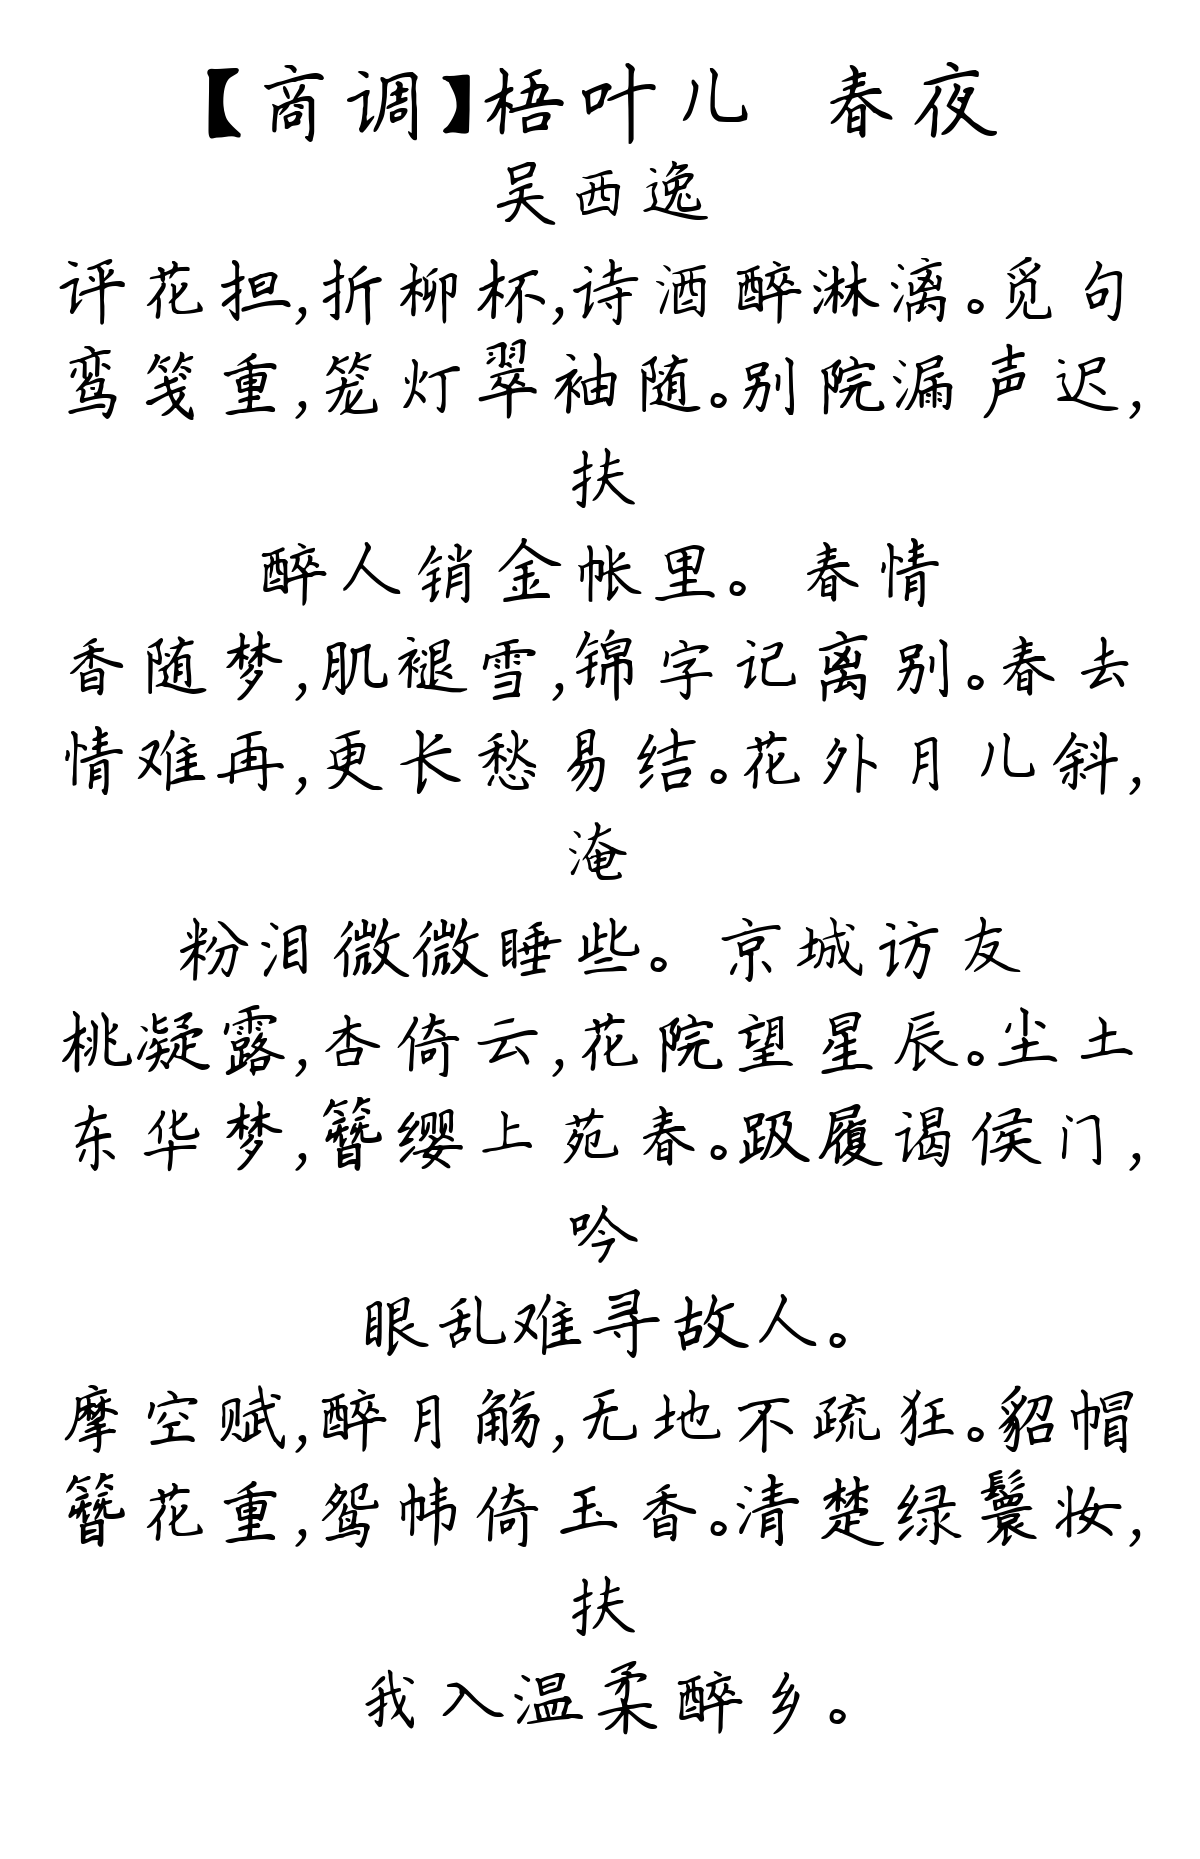 【商调】梧叶儿 春夜
吴西逸
评花担,折柳杯,诗酒醉淋漓。觅句
鸾笺重,笼灯翠袖随。别院漏声迟,
扶
醉人销金帐里。 春情
香随梦,肌褪雪,锦字记离别。春去
情难再,更长愁易结。花外月儿斜,
淹
粉泪微微睡些。 京城访友
桃凝露,杏倚云,花院望星辰。尘土
东华梦,簪缨上苑春。趿履谒侯门,
吟
眼乱难寻故人。
摩空赋,醉月觞,无地不疏狂。貂帽
簪花重,鸳帏倚玉香。清楚绿鬟妆,
扶
我入温柔醉乡。